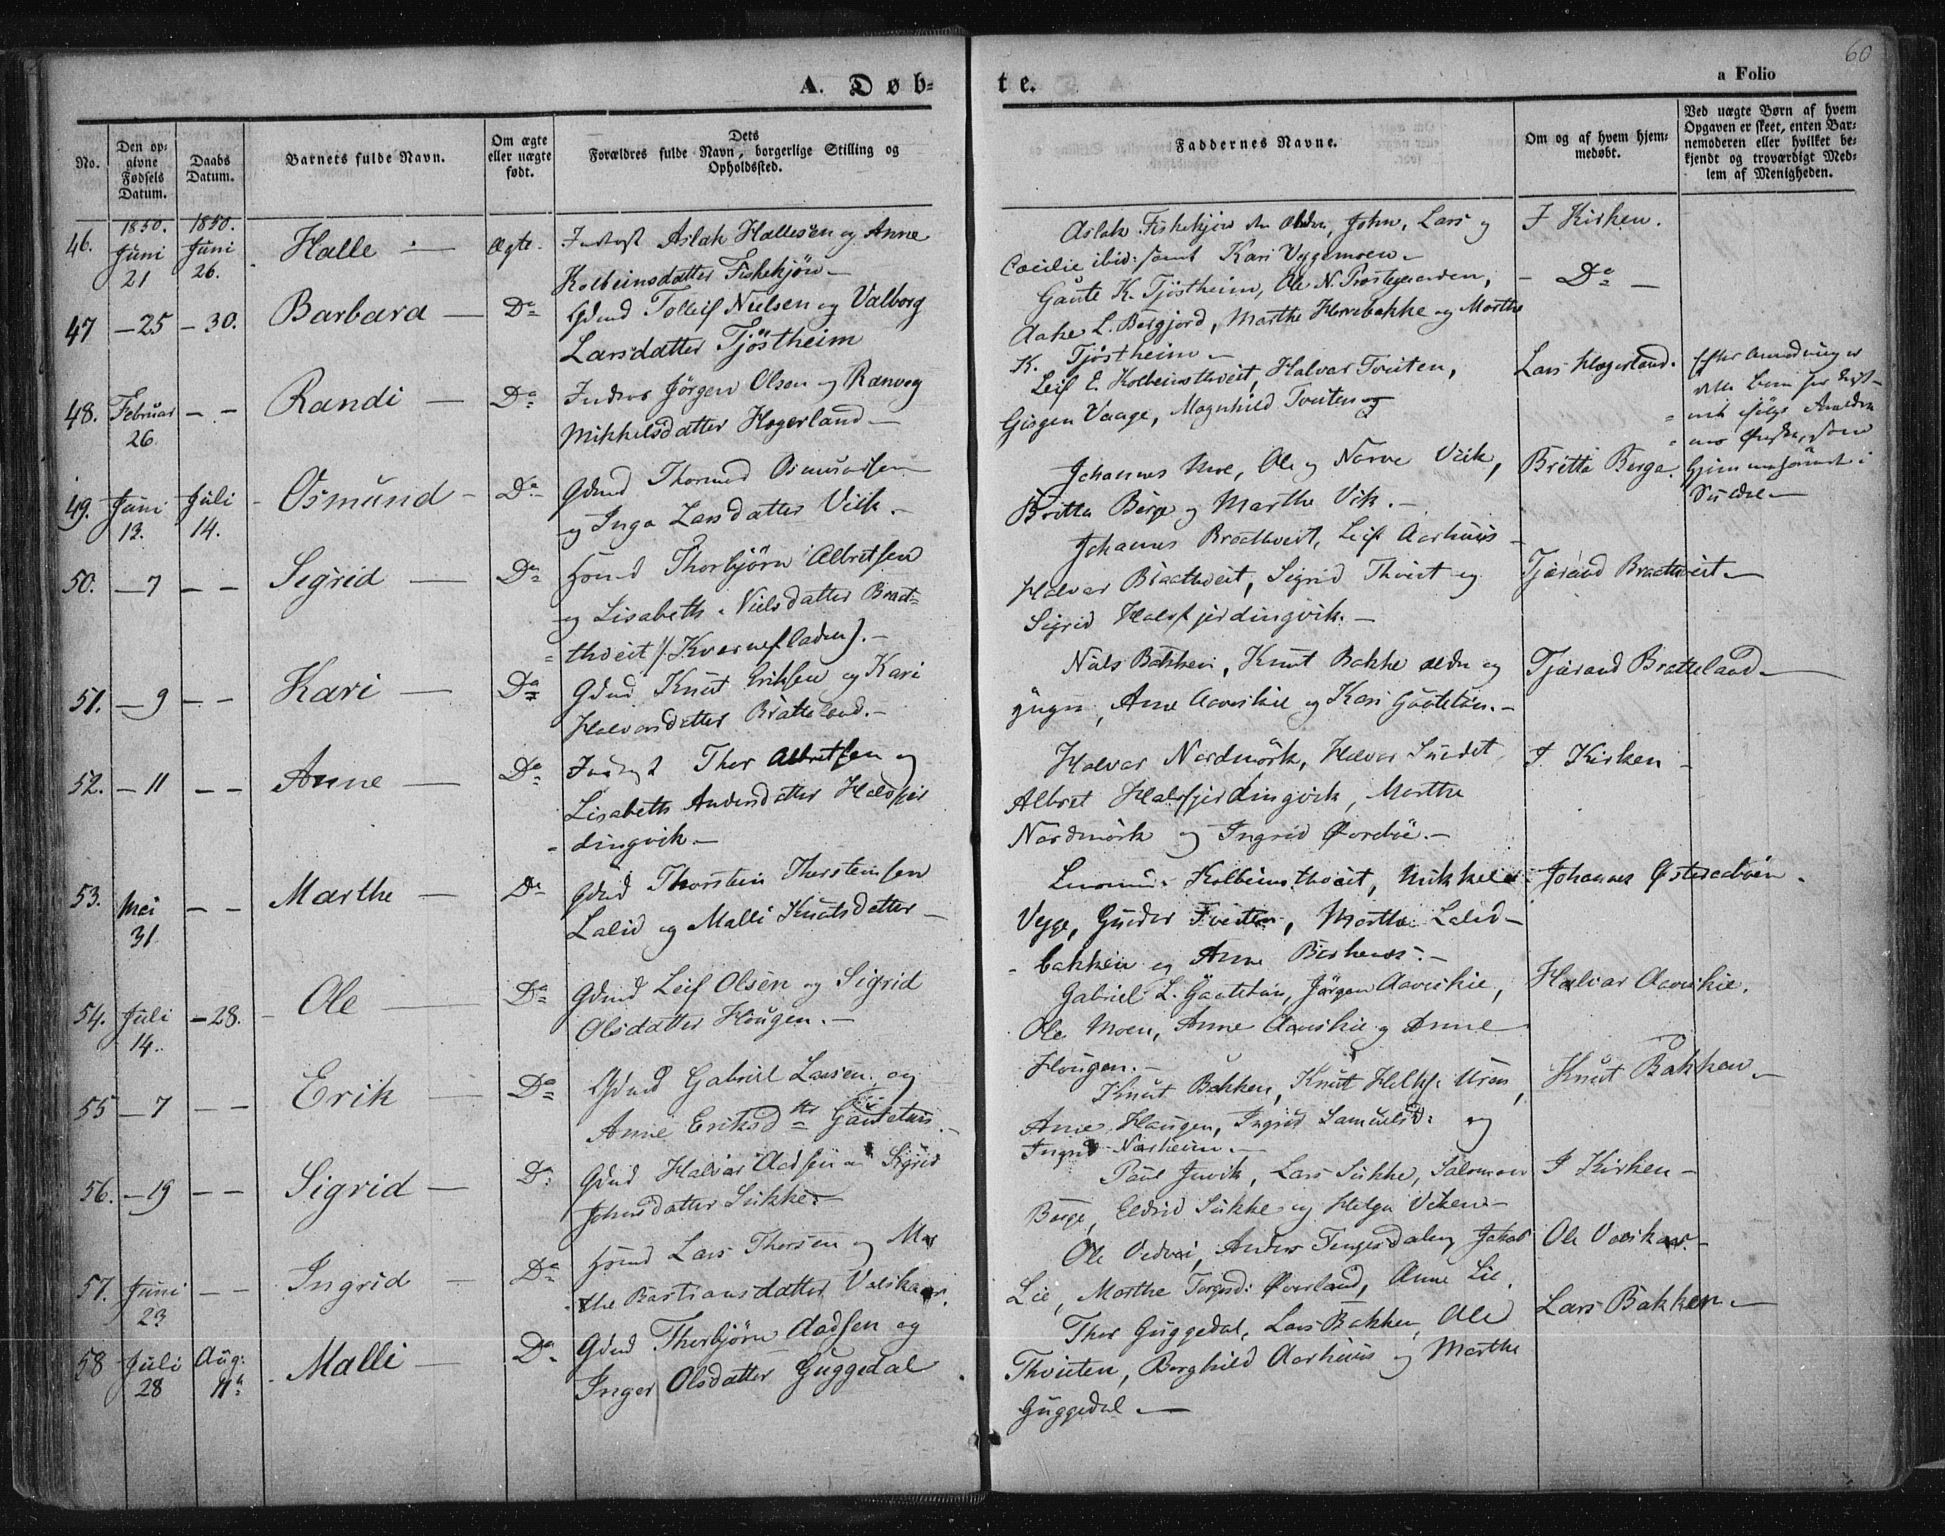 60
A. Døb-
te.
a Folio
No.
Den op-
givne
Fødsels
Datum.
Daabs
Datum.
Barnets fulde Navn.
Om ægte
eller uægte
født.
Dets
Forældres fulde Navn, borgerlige Stilling og
Opholdssted.
Faddernes Navne.
Om og af hvem hjem-
medøbt.
Ved uægte Børn af hvem
Opgaven er skeet, enten Bar-
nemoderen eller hvilket be-
kjendt og troværdigt Med-
lem af Menigheden.
46. 1850. Juni 21 1850. Juni 26. Halle Ægte.
Aslak Hallesen og Anne
Kolbeinsdatter Fiskekjøn
Aslak Fiskekjøn den Ældre, John, Lars og
Cæcilie ibid: samt Kari Veggemoen
I Kirken.
47 - 25 - 30. Barbara Do
Gdmd Tolleif Nielsen og Valborg
Larsdatter Tjöstheim
Gaute K. Tjöstheim, Ole N. Prostegaarden,
Aake L. Bergjord, Marthe Herrebakke og Marthe
K. Tjöstheim
Do
48. Februar 26. - - Randi Do
Jörgen Olsen og Ranveg
Mikkelsdatter Hogerland
Leif E. Kolbeinsthveit, Halvar Tveiten,
Gisgen Vaage, Magnhild Tveiten og
Lars Hogerland.
49. Juni 13. Juli 14. Osmund Do
Gdmd Thormod Osmundsen
og Inga Larsdatter Viik.
Johannes Moe, Ole og Narve Viik,
Britta Berge og Marthe Vik.
Britta Berge.
Suldal
50. - 7 - - Sigrid Do
Hsmd Thorbjörn Albretsen
og Lisabeth Nielsdatter Braat-
thveit /: Kvernefladen).
Johannes Braathveit, Leif Aarhuus
Halvar Braathveit, Sigrid Thveit og
Sigrid Halsfjerdingvik.
Tjærand Braathveit
51. - 9 - - Kari Do
Gdmd Knut Eriksen og Kari
Halvorsdatter Bratteland.
Niels Bakken, Knut Bakke ældre og
yngre, Anne Aaveskie og Kari Gautetun.
Tjærand Bratteland
52. - 11 - - Anne Do
Thor Albretsen og
Lisabeth Andersdatter Halsfjer
dingvik
Halvar Nordmörk, Halvar
Albret Halsfjerdingvik, Marthe
Nordmörk og Ingrid
I Kirken
53. Mai 31. - - Marthe Do
Gdmd Thorstein Thorsteinsen
Lalid og Malli Knutsdatter
Kolbeinsthveit, Mikkel
Vegge, Guder Tveiten, Marthe Lalid-
bakken og Anne
Johannes
54. Juli 14. - 28. Ole Do
Gdmd Leif Olsen og Sigrid
Olsdatter Hougen.
Gabriel L. Gautetun, Jörgen Aaveskie,
Ole Moen, Anne Aaveskie og Anne
Hougen.
Halvar Aaveskie.
55 - 7 - - Erik Do
Gdmd Gabriel Larsen og
Anne Eriksdtr Gautetun.
Knut Bakken, Knut Uren,
Anne Haugen, Ingrid Samuelsd: og
Ingrid Nærheim.
Knut Bakken
56. - 19 - - Sigrid Do
Gdmd Halvar Aadsen og Sigrid
Johnsdatter Sukke
Paul Juvik, Lars Sukke, Salomon
Berge, Eldrid Sukke og Helga Vikene
I Kirken
57. Juni 23 - - Ingrid Do
Hsmd Lars Thorsen og Mar
the Bastiansdatter
Ole Anders Tengesdalen, Jakob
Lie, Marthe Torgersd: Øverland, Anne Lie.
Ole
58 Juli 28 Aug: 11te Malli Do
Gdmd Thorbjörn Aadsen og
Inger Olsdatter Guggedal
Thor Guggedal, Lars Bakken, Ole
Thveiten, Borghild Aarhuus og Marthe
Guggedal
Lars Bakken